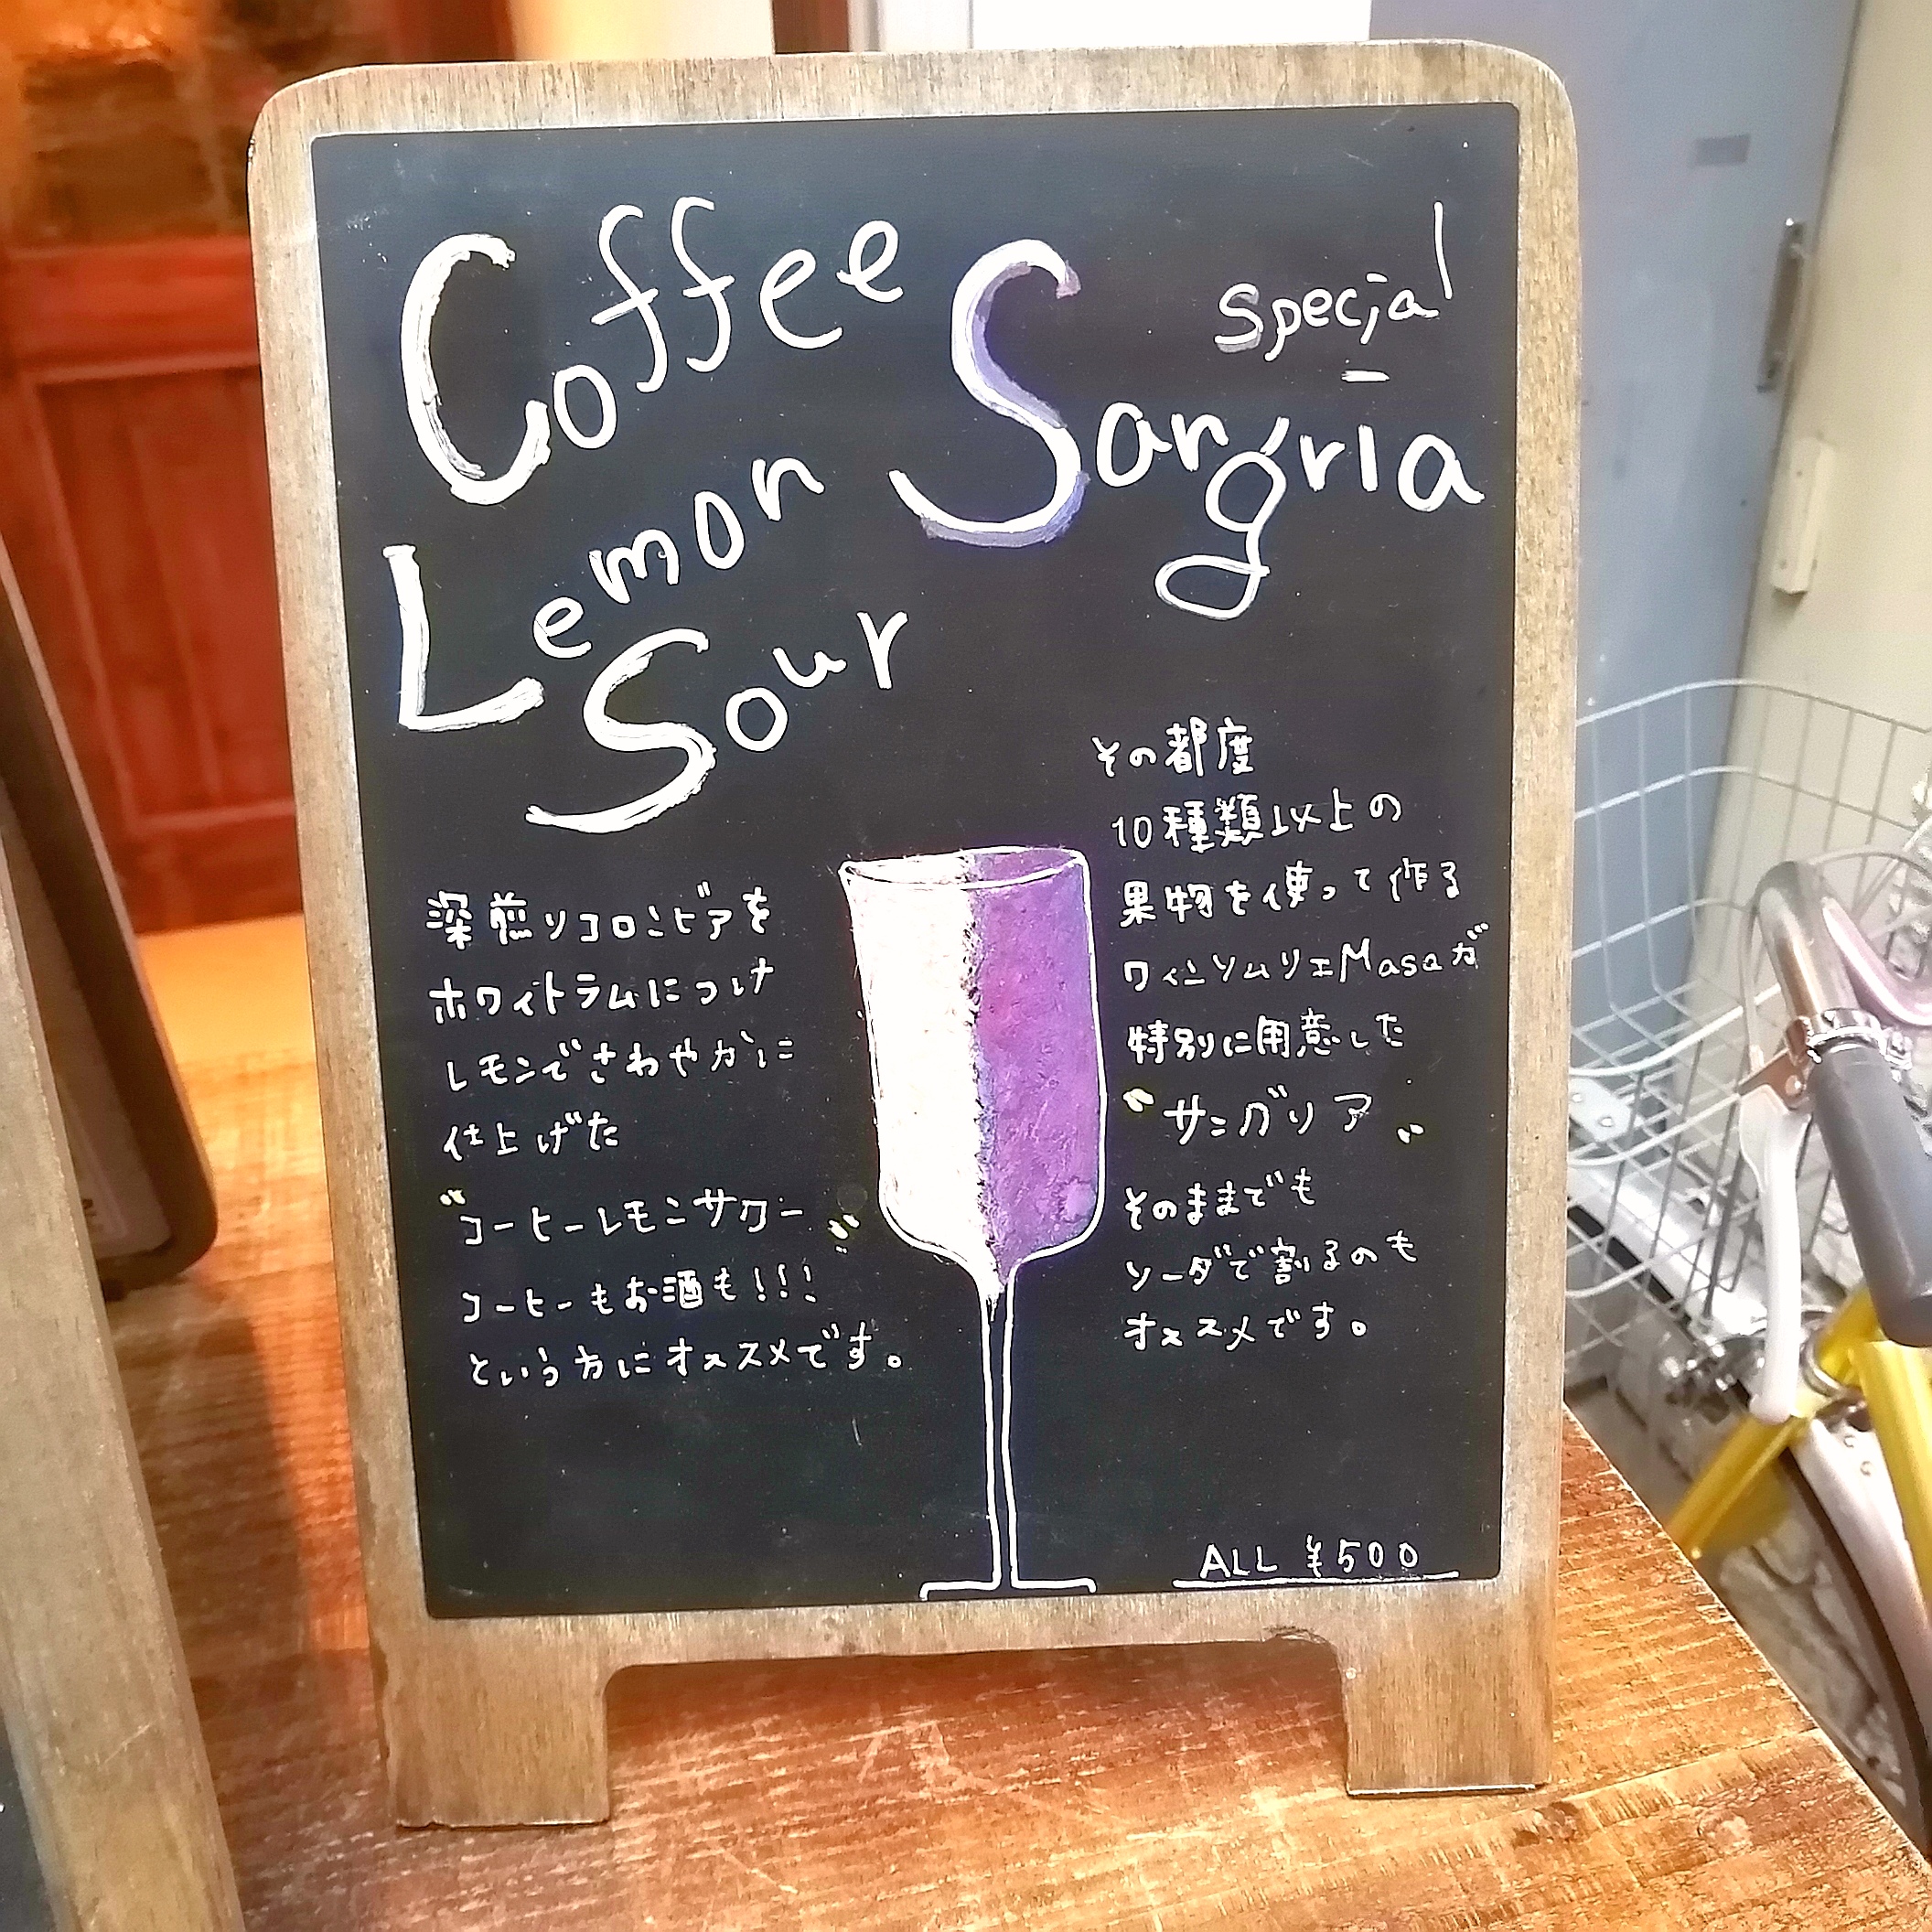 Coffee
Lemon
Sour
深煎りコロンビアを
ホワイトラムにつけ
レモンでさわやかに
仕上げた
"コーヒーレモンサワー"
コーヒーもお酒も!!!
という方にオススメです。
Special
Sangria
その都度
10種類以上の
果物を使って作る
ワインソムリエMasaが
特別に用意した
"サングリア"
そのままでも
ソーダで割るのも
オススメです。
ALL ¥500